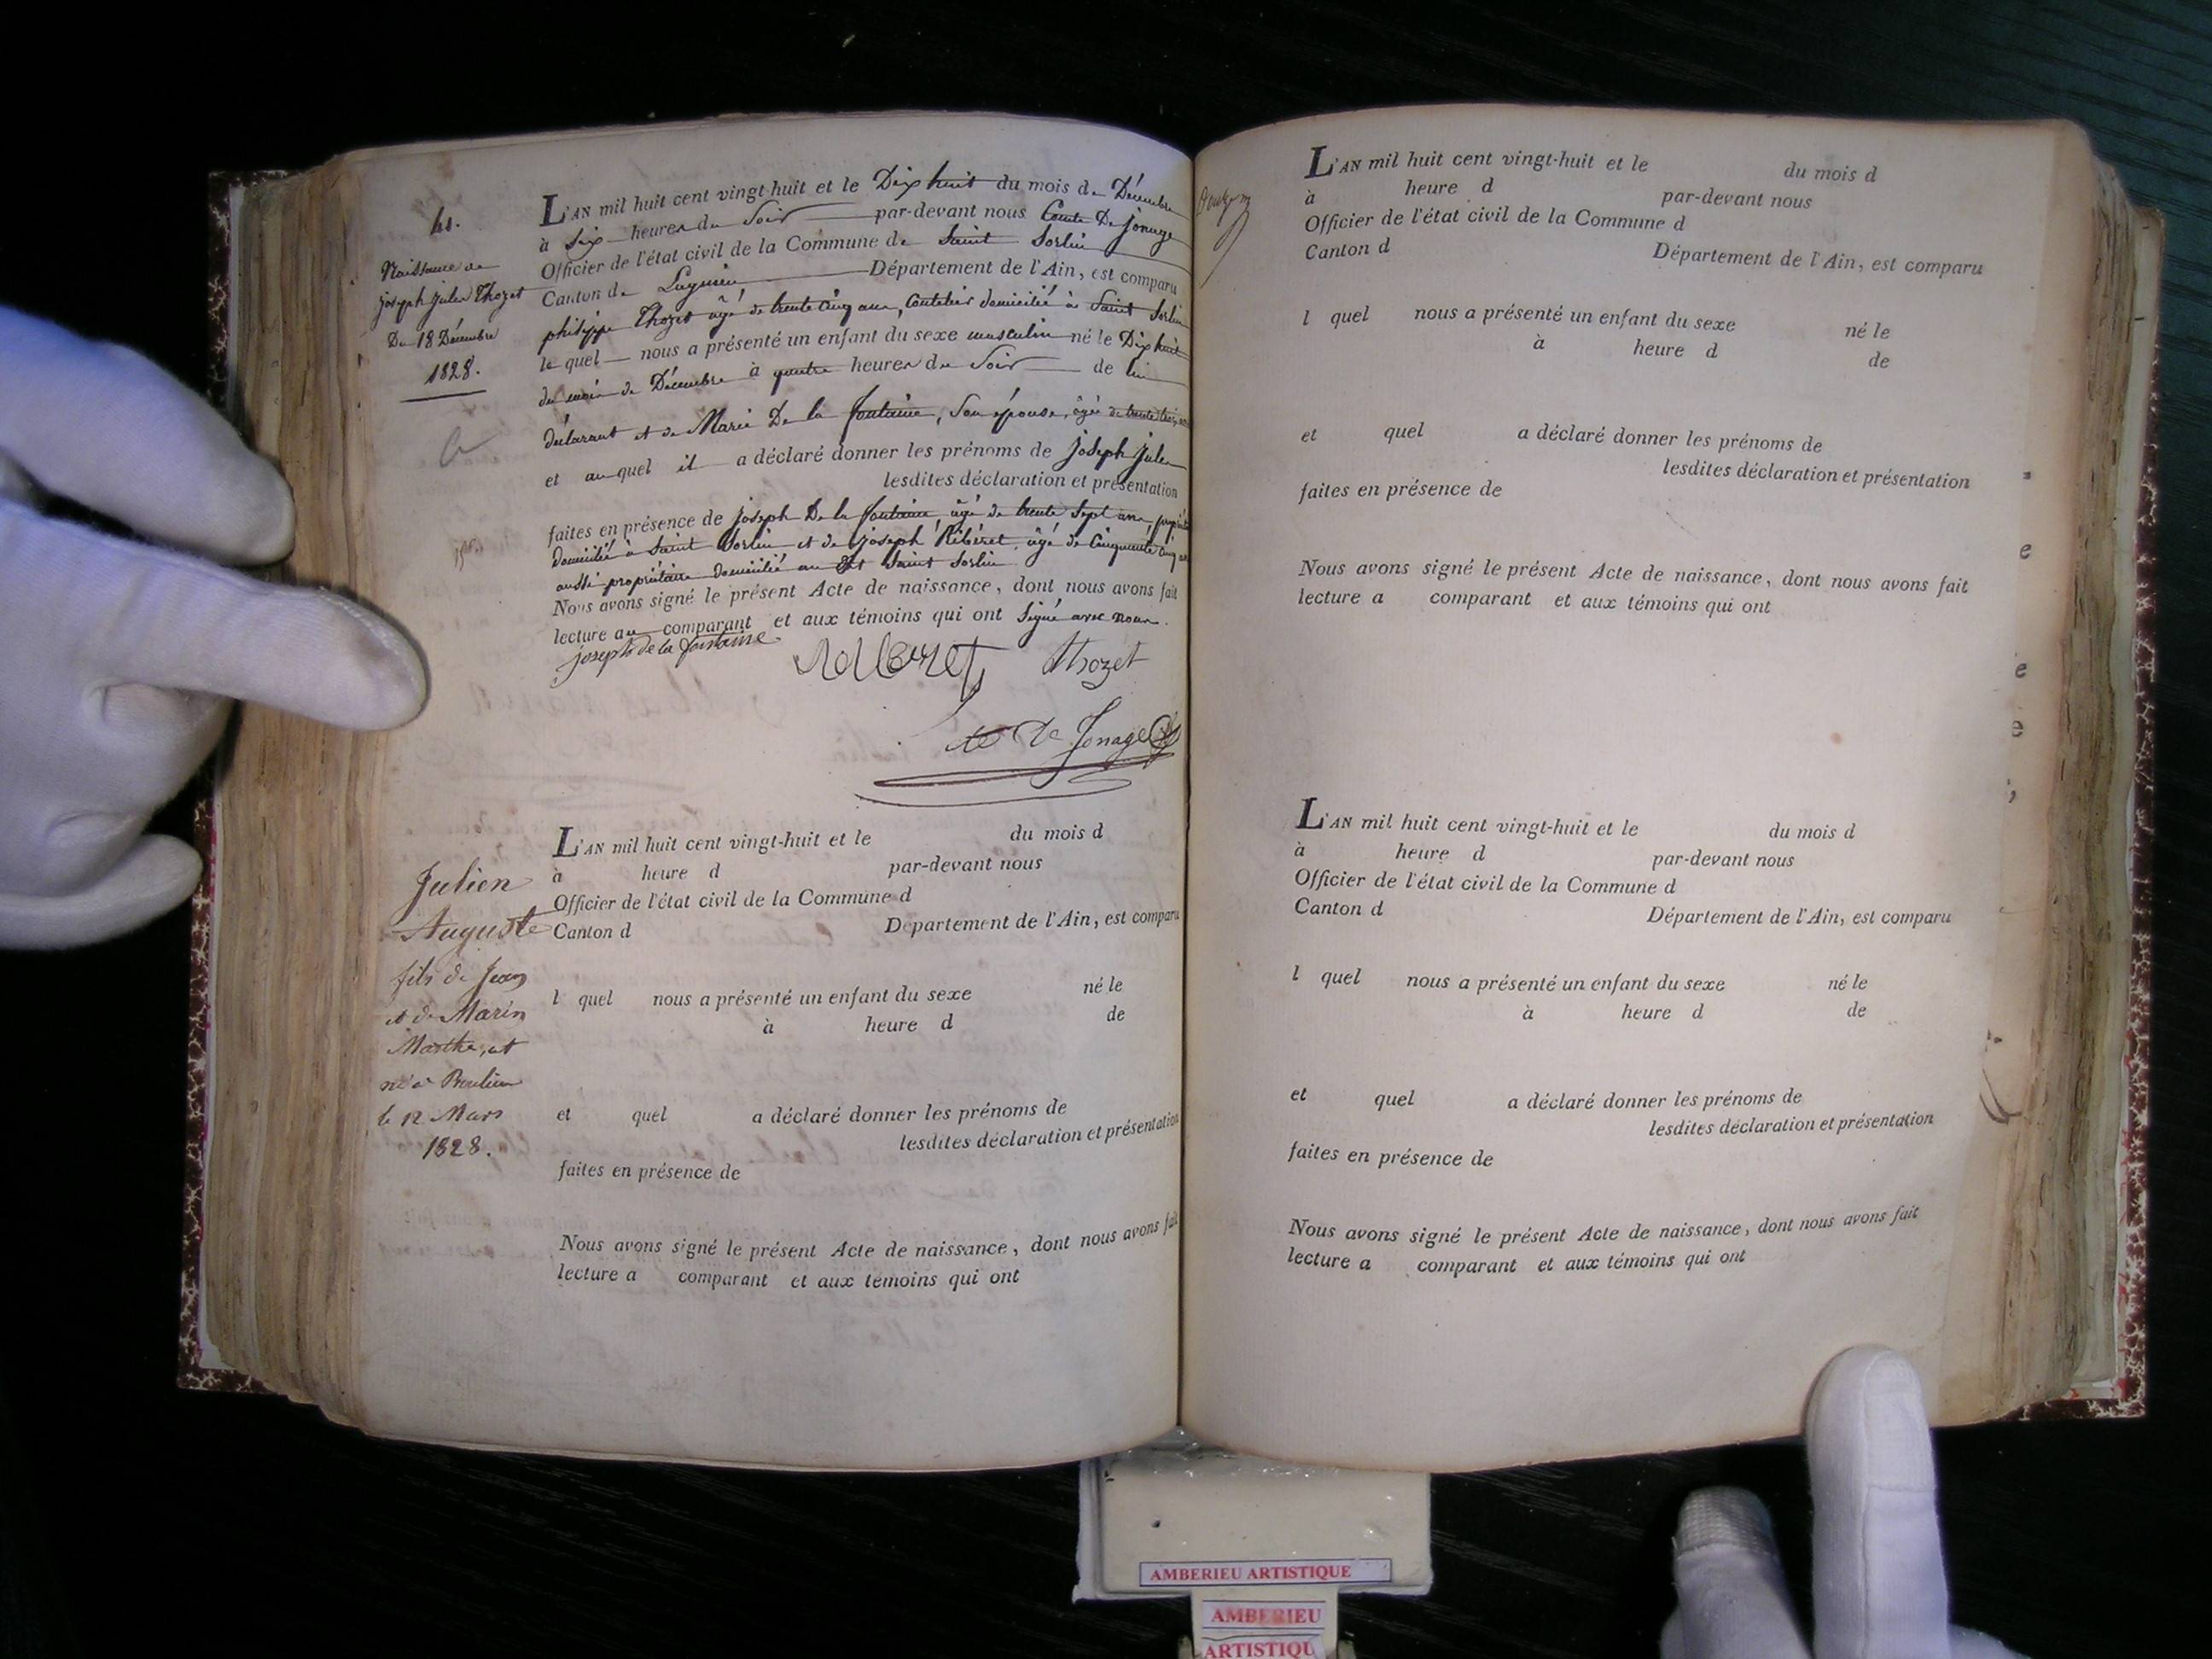 41.
Naissance de
joseph jules Thozet
Du 18 Décembre
1828.
L'AN mil huit cent vingt-huit et le Dix huit du mois de Décembre
à Six heures du Soir par-devant nous Comte De jonage
Officier de l'état civil de la Commune de Saint Sorlin
Canton de Lagnieu Département de l'Ain, est comparu
philippe Thozet âgé de trente cinq ans, coutelier domicilié à Saint Sorlin
le quel nous a présenté un enfant du sexe masculin né le Dix huit
du mois de Décembre à quatre heures du Soir de lui
déclarant et de Marie De la fontaine, Son épouse, âgée de trente trois ans
et auquel il a déclaré donner les prénoms de joseph jules
lesdites déclaration et présentation
faites en présence de joseph De la fontaine âgé de trente Sept ans,
domicilié à Saint Sorlin et de joseph Ribéret, âgé de Cinquante cinq ans
aussi propriétaire domicilié au dit Saint Sorlin
Nous avons signé le présent Acte de naissance, dont nous avons fait
lecture au comparant et aux témoins qui ont Signé avec nous.
joseph de la fontaine Thozet
De Jonage
L'AN mil huit cent vingt-huit et le du mois d
à heure d par-devant nous
Officier de l'état civil de la Commune d
Canton d Département de l'Ain, est comparu
l quel nous a présenté un enfant du sexe né le
à heure d de
et quel a déclaré donner les prénoms de
lesdites déclaration et présentation
faites en présence de
Nous avons signé le présent Acte de naissance, dont nous avons fait
lecture a comparant et aux témoins qui ont
Julien
Auguste
fils de Jean
et de Marin
Marthe, est
né à
le 12 Mars
1828.
L'AN mil huit cent vingt-huit et le du mois d
à heure d par-devant nous
Officier de l'état civil de la Commune d
Canton d Département de l'Ain, est comparu
l quel nous a présenté un enfant du sexe né le
à heure d de
et quel a déclaré donner les prénoms de
lesdites déclaration et présentation
faites en présence de
Nous avons signé le présent Acte de naissance, dont nous avons fait
lecture a comparant et aux témoins qui ont
L'AN mil huit cent vingt-huit et le du mois d
à heure d par-devant nous
Officier de l'état civil de la Commune d
Canton d Département de l'Ain, est comparu
l quel nous a présenté un enfant du sexe né le
à heure d de
et quel a déclaré donner les prénoms de
lesdites déclaration et présentation
faites en présence de
Nous avons signé le présent Acte de naissance, dont nous avons fait
lecture a comparant et aux témoins qui ont
AMBERIEU ARTISTIQUE
AMBERIEU
ARTISTIQU